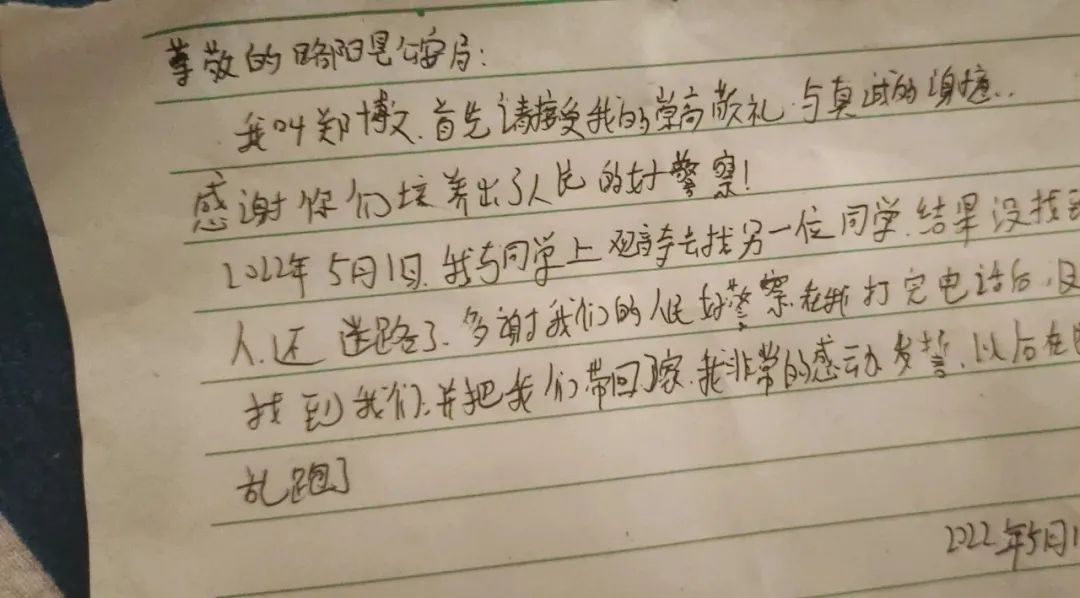 尊敬的略阳县公安局:
我叫郑博文.首先请接受我的崇高敬礼.与真诚的谢意..
感谢你们培养出了人民的好警察!
2022年5月1日.我与同学上观音寺去找另一位同学.结果没找到
人.还迷路了.多谢我们的人民好警察.在我打完电话后.没
找到我们.并把我们带回了家.我非常的感动发誓.以后在
乱跑了
2022年5月1